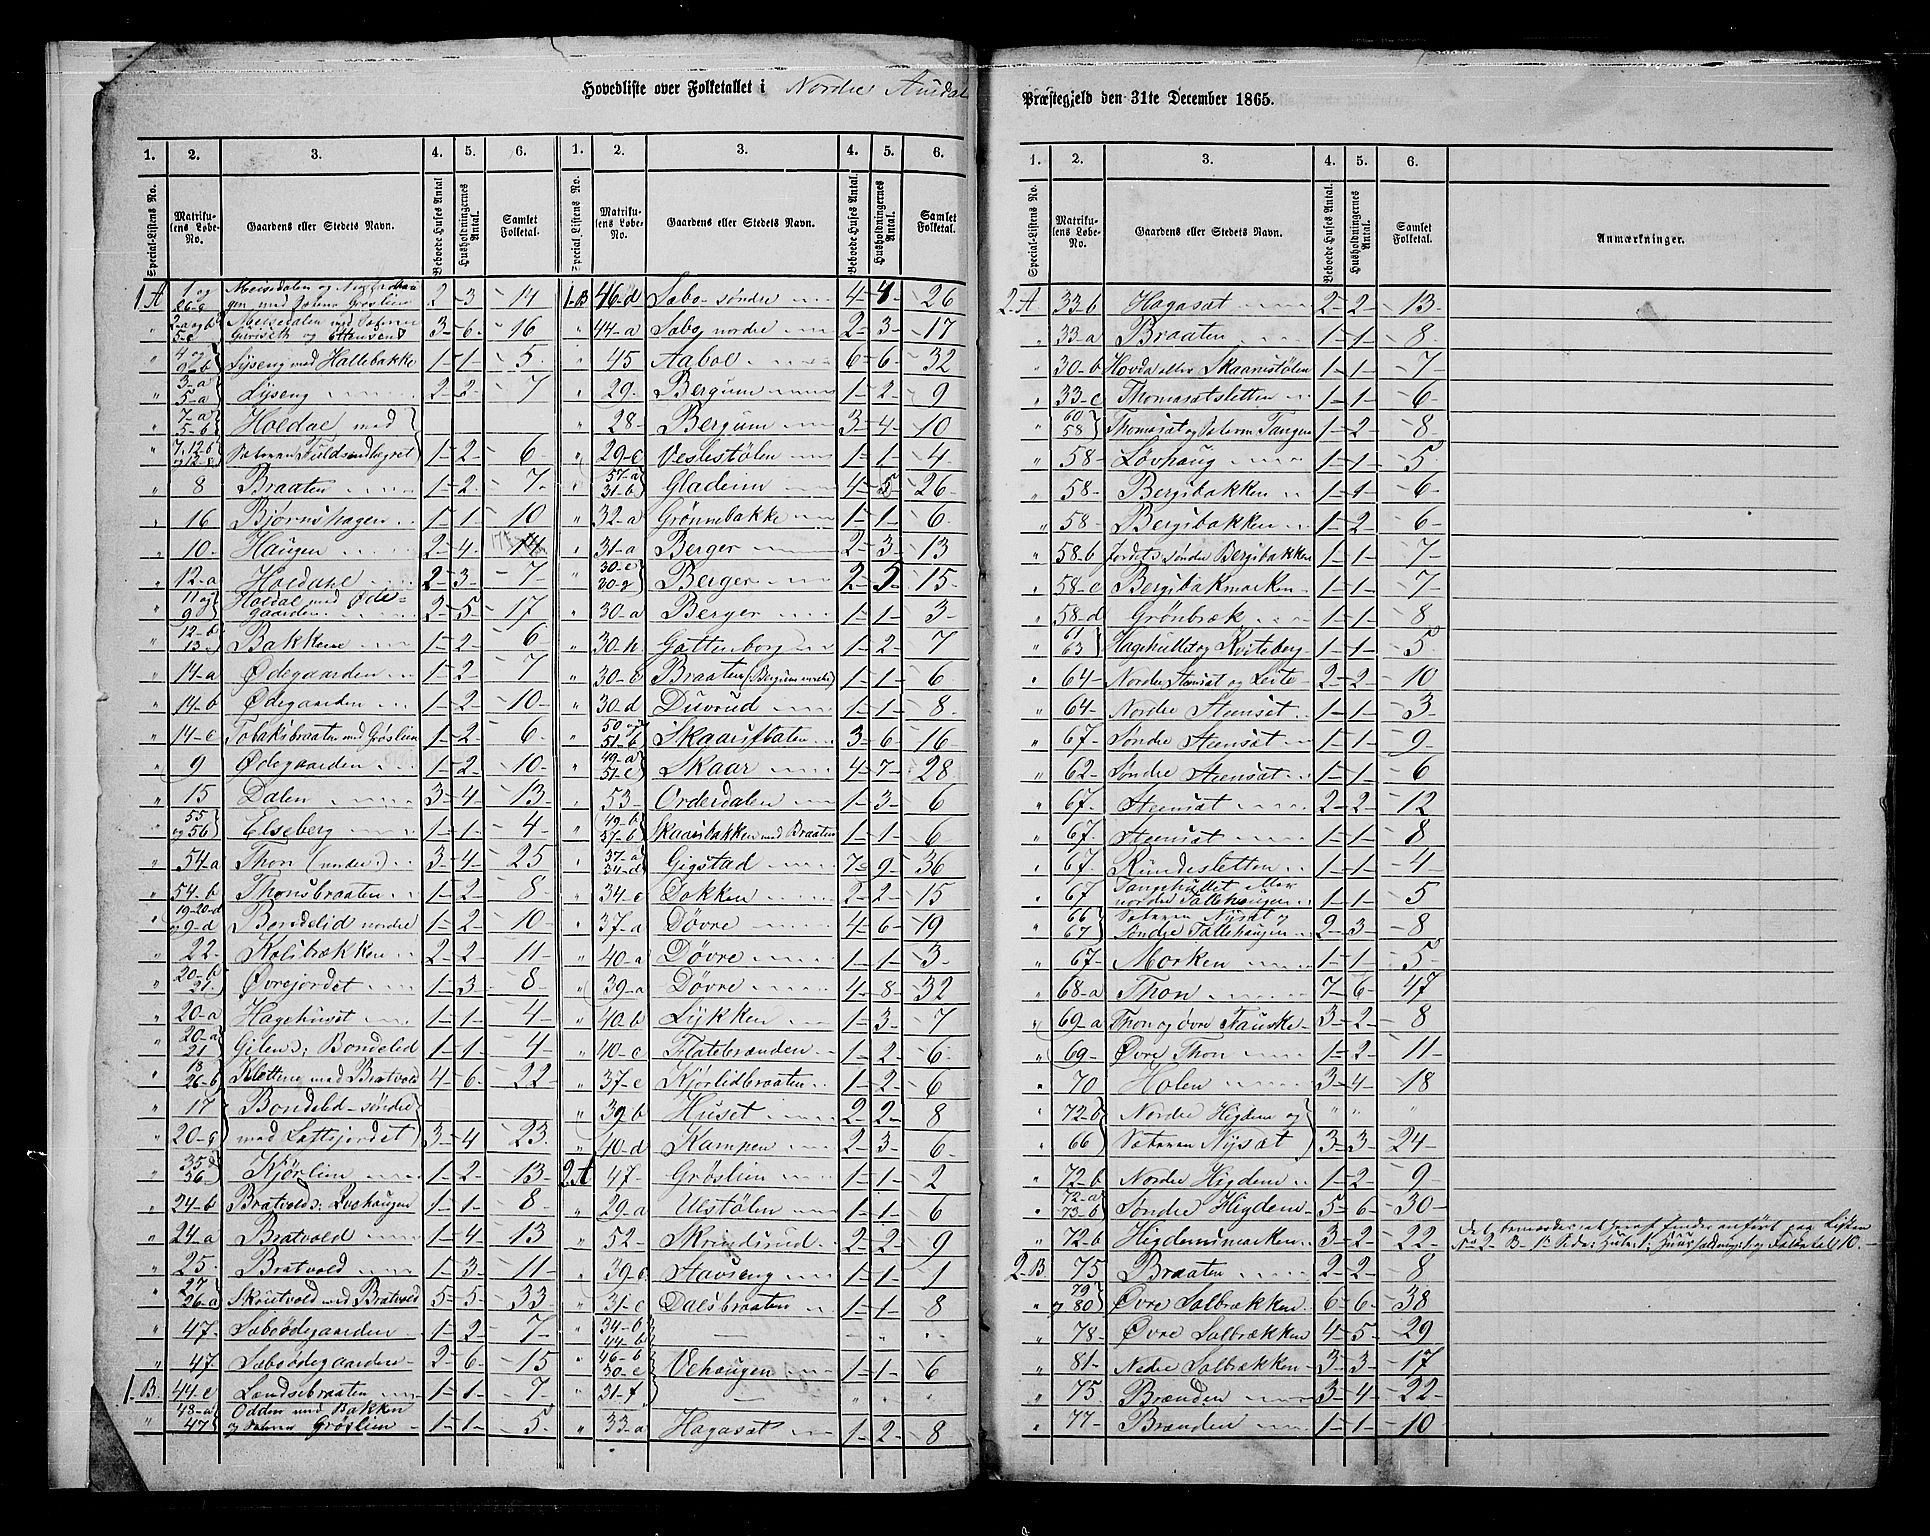 Hovedliste over Folketallet i Nordre Aurdal
1. 2. 3. 4. 5. 6. 1. 2. 3. 4. 5. 6.
Special-Listens No. Matrikulens Løbe-No. Gaardens eller Stedets Navn. Beboede Huses Antal Husholdningernes Antal. Samlet Folketal. Special-Listens No. Matrikulens Løbe-No. Gaardens eller Stedets Navn. Beboede Huses Antal. Husholdningernes Antal. Samlet Folketal.
1 A 1 og 26-c 2 3 14 1-B 46-d Sæbo-søndre 4 4 26
" 2-a og b 5-c 3 6 16 " 44-a Sæbo nordre 2 3 17
" 4 og 9-b Lyseng med Hallebakke 1 1 5 45 Aaboe 6 6 32
" 3-a 5-a Lyseng 2 2 7 29 Bergum 1 2 9
" 7-a 5-b Holdal med 28 Bergum 3 4 10
" 7, 12-b og 12-c 1 2 6 " 29-c Veslestølen 1 1 4
" 8 Braaten 1 2 7 57-a 31-b Gladeim 4 5 26
16 Bjørnshagen 1 1 10 " 32-a Grønnebakke 1 1 6
" 10 Haugen 2 4 14 31-a Berger 2 3 13
" 12-a Holdahl 2 3 7 30-c 30-g Berger 2 5 15
" 11 og 9 Holdal med Ødegaarden 2 5 17 30-a Berger 1 1 3
" 12-b 13 Bakkene 1 2 6 " 30-h Gøttenborg 1 2 7
" 14-a Ødegaarden 1 2 7 30-c Braaten (Bergum nordre) 1 1 6
" 14-b Ødegaarden 1 2 10 30-d Duvrud 1 1 8
" 14-c Tobaksbraaten med Grøslien 1 2 6 50 og 51-b Skaarsflaten 3 6 16
" 9 Ødegaarden 1 2 10 49-a 51-c Skaar 4 7 28
" 15 Dalen 3 4 13 53 Ordesdalen 1 3 6
" 55 og 56 Elseberg 1 1 4 49-b 37-b Skaarsbakken med Braaten 1 1 6
" 54-a Thon (nedre) 3 4 25 37-a 34-d Gigstad 7 9 36
" 54-b Thonsbraaten 1 2 8 34-c Dokken 2 2 15
19-20-d og 9-d Bondelid nordre 1 2 10 " 37-a Døvre 4 6 19
" 22 Kolsbrækken 2 2 11 40-a Døvre 1 1 3
" 20-b 21 Øvrejordet 1 3 8 39-a Døvre 4 8 32
" 20-a Hagehuset 1 1 4 " 40-b Lykken 1 3 7
" 20-a 21 Gilens i Bondelid 1 1 4 40-c Flatebrænden 1 2 6
18 26-b Kløttene med Bratvold 4 6 22 " 37-c Kjørlidbraaten 1 2 6
" 17 Bondelid-søndre 39-b Huset 2 2 8
" 20-c med Loftsjordet 3 4 23 40-d Kampen 2 3 6
" 35-d 56 Kjørlien 1 2 13 2 A 47 Grøslien 1 1 2
" 24-b 1 1 8 29-a Ulstølen 1 1 6
" 24-a Bratvold 1 4 13 " 52 Skrindsrud 2 2 9
" 25 Bratvold 1 3 11 39-c Stavseng 1 1 1
" 27 26-a Skrutvold med Bratvold 5 5 33 31-c Dalsbraaten 1 1 8
" 47 Sæboødegaarden 1 2 7 34-b 44-b
" 47 Sæboødegaarden 2 6 15 46-b 30-c 31-f Vehaugen 1 1 6
1. B 44-c Lændsebraaten 1 1 7
" 48-a 47 Odden med Bakken og Sæteren Grøslien 1 1 5 " 33-a Hagasæt 1 2 8
Præstegjeld den 31te December 1865.
1. 2. 3. 4. 5. 6.
Special-Listens No. Matrikulens Løbe-No. Gaardens eller Stedets Navn. Beboede Huses Antal. Husholdningernes Antal. Samlet Folketal. Anmærkninger.
2 A 33-b Hagasæt 2 2 13
" 33-a Braaten 1 1 8
" 30-b Hovda eller Skaarsstølen 1 1 7
" 33-c Thomasætsletten 1 1 6
" 60 58 Thomasæt og Sæteren Tangen 1 2 8
" 58 Løvhaug 1 1 5
" 58 Bergsbakken 1 1 6
" 58 Bergsbakken 1 2 6
" 58-b Jordet søndre Bergsbakken 1 1 7
" 58-c Bergsbakmarken 1 1 7
" 58-d Grønbæk 1 1 8
" 61 63 Hagehullet og Kviteberg 1 1 5
" 64 Nordre Steensæt og Leite 2 2 10
" 64 Nordre Steensæt 1 1 3
" 67 Søndre Steensæt 1 1 9
" 62 Søndre Steensæt 1 1 6
" 67 Steensæt 2 2 12
" 67 Steensæt 1 1 8
" 67 Rundesletten 1 1 4
" 67 Tangehullet eller nordre Tollehaugen 1 1 5
" 66 67 Sæteren Nysæt og Søndre Tollehaugen 2 3 8
" 67 Morken 1 1 5
" 68-a Thon 7 6 47
" 69-a Thon og øvre Fauske 3 2 8
" 69 Øvre Thon 1 2 11
" 70 Holen 3 4 18
" 72-b Nordre Higdem og " " "
" 66 Sæteren Nysæt 3 3 24
" 72-b Nordre Higdem 1 2 9
" 72-a 73-b Søndre Higdem 5 6 30
" 72-b Higdemsmarken 3 2 22 Det bemærkes at heraf findes anført paa Listen No 2 B 1ste Side: Huse 1, Huusholdninger 1 og Folketal 10.
2 B 75 Braaten 2 2 8
" 79 og 80 Øvre Salbrækken 6 6 38
" 78 Øvre Salbrækken 4 5 29
" 81 Nedre Salbrækken 3 3 17
" 75 Brænden 3 4 22
" 77 Brænden 1 1 10